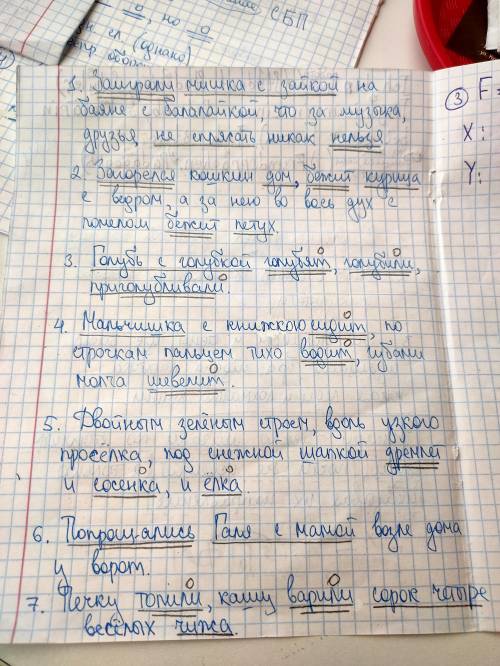 СБП
о, но о
ел. (однако)
1. Заиграли мишка с зайкой на
баяне с балалайкой, что за музыка,
друзья, не сплясать никак нельзя
2. Загорелся кошкин дом, бежит курица
с ведром, а за нею во весь дух с
помелом бежит петух.
3. Голубь с голубкой голубят, голубили,
приголубливали.
4. Мальчишка с книжкою сидит, по
строчкам пальцем тихо водит, губами
молча шевелит.
5. Двойным зелёным строем, вдоль узкого
просёлка, под снежной шапкой дремлет
и сосенка, и ёлка.
6. Попрощались Галя с мамой возле дома
у ворот.
7. Печку топили, кашу варили сорок четыре
весёлых чижа.
3 F=
X:
Y: